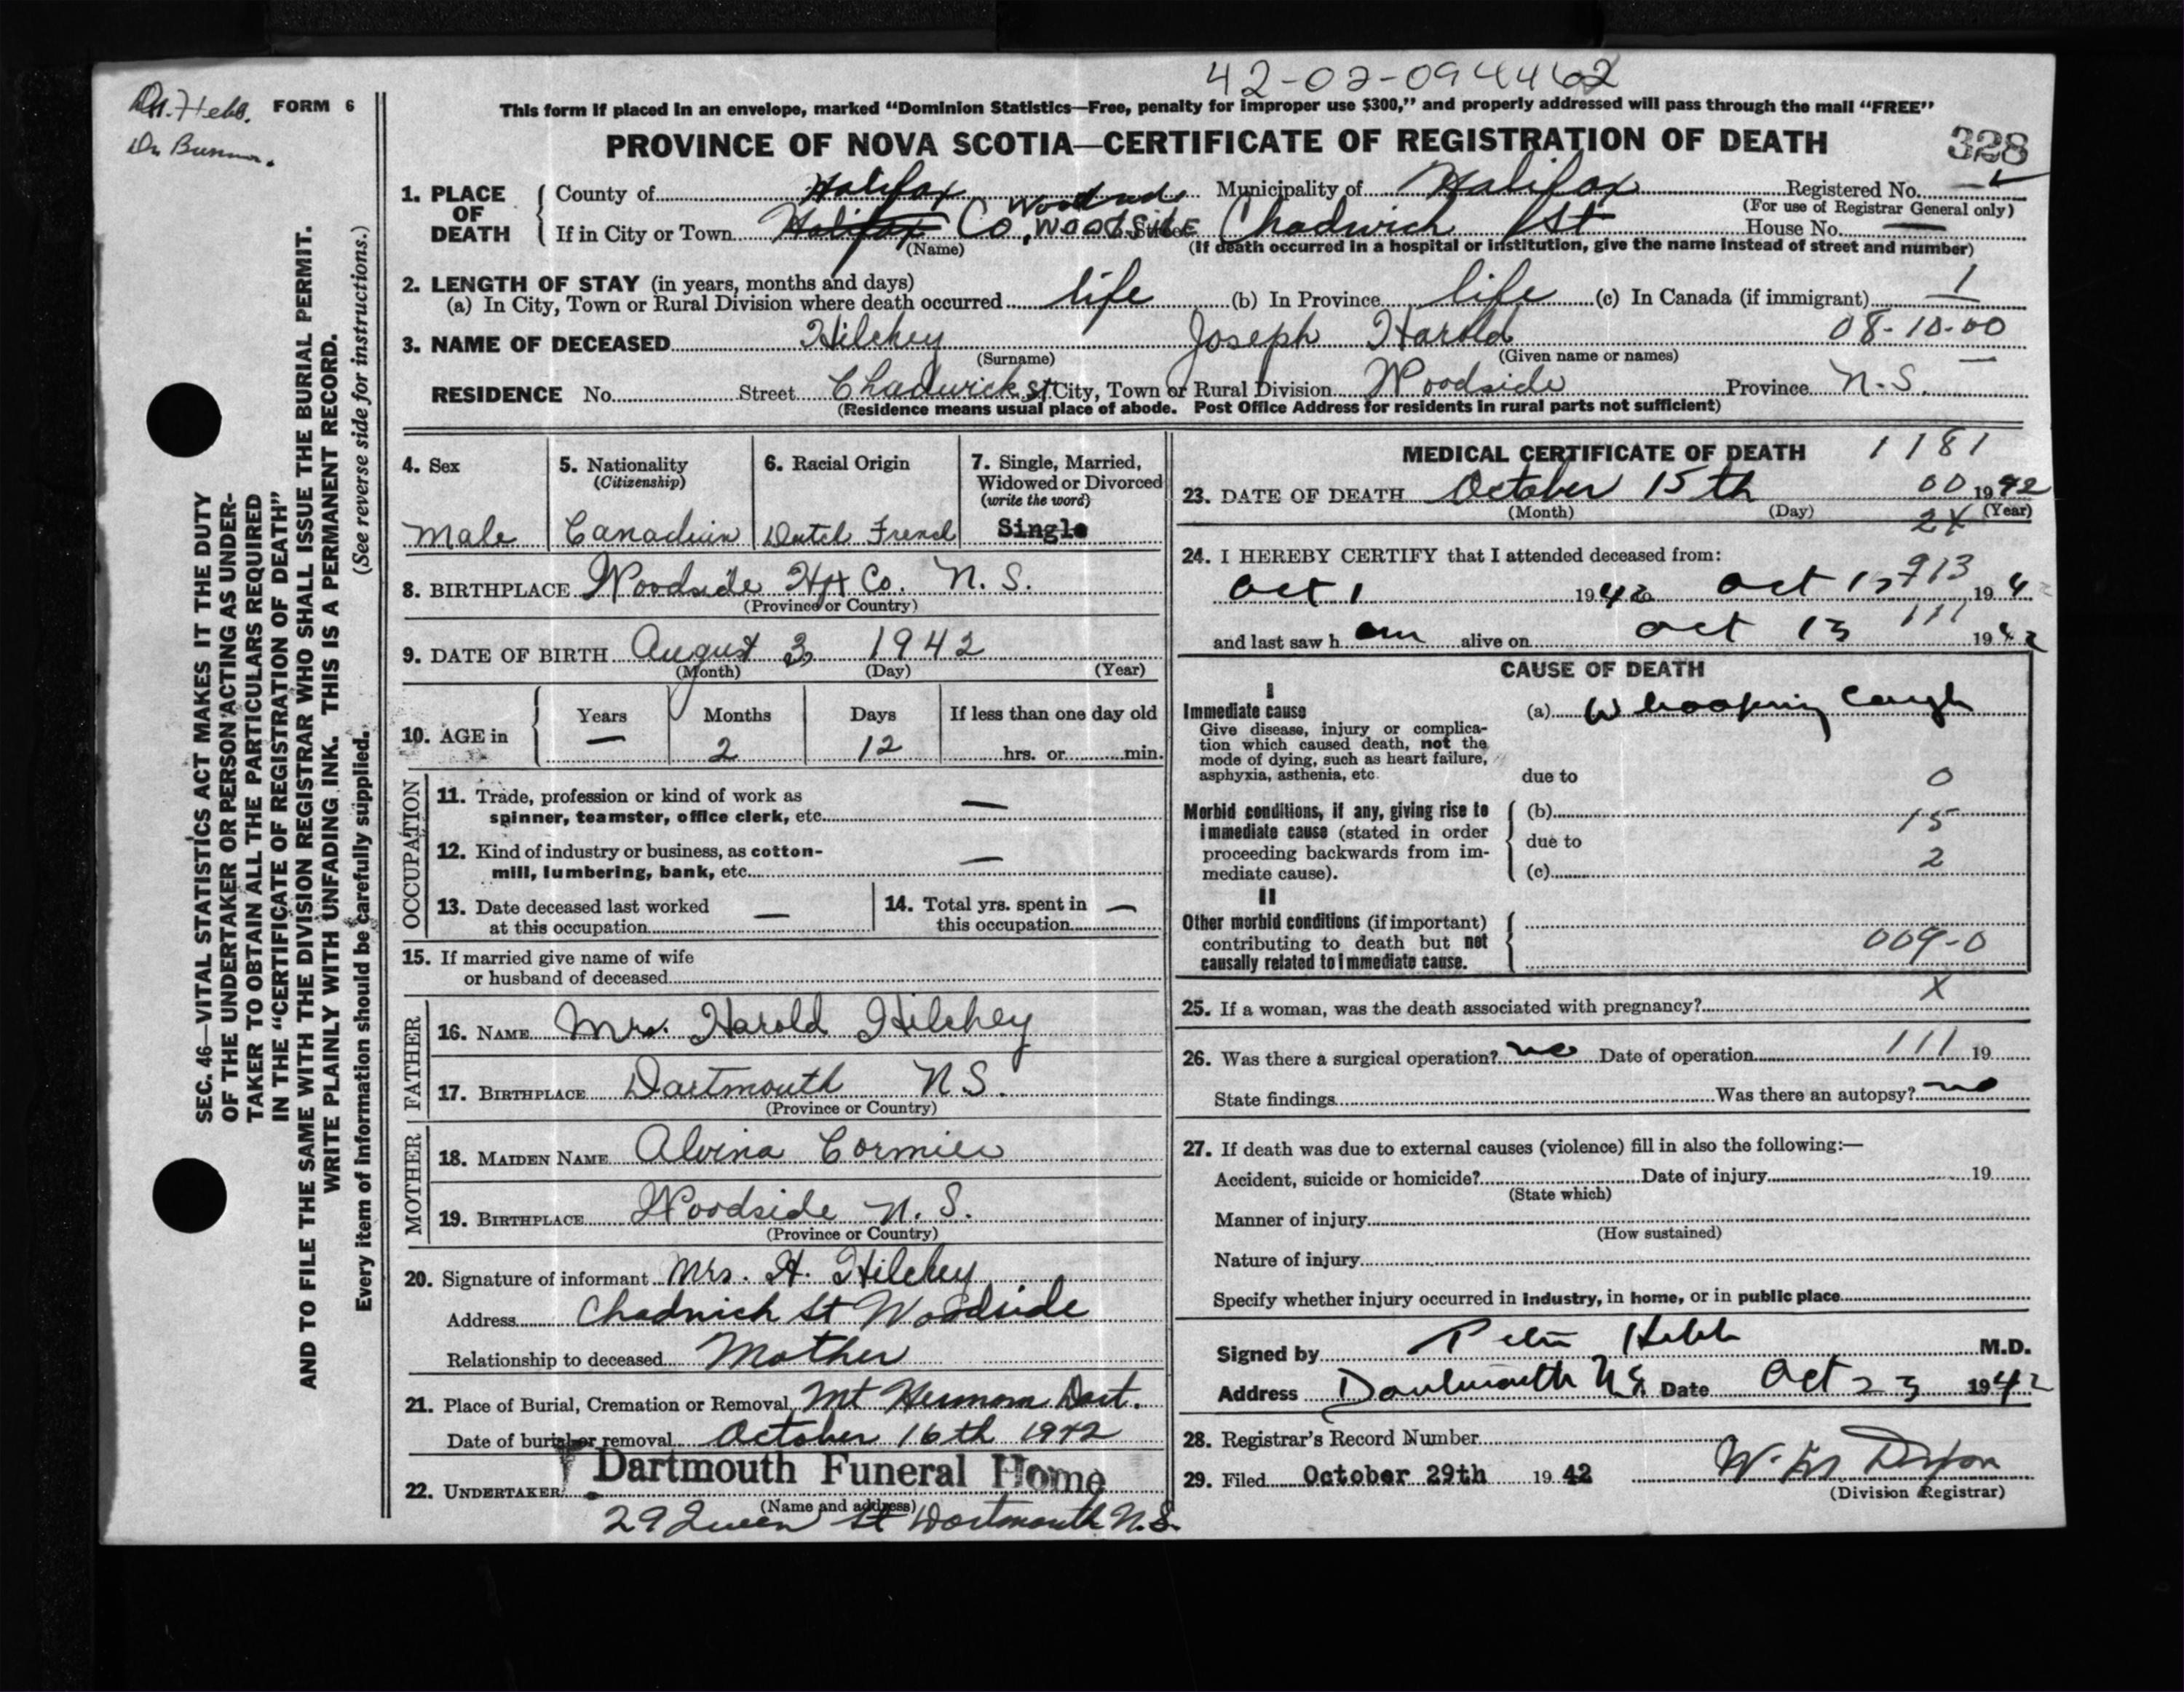 42-02-094462
Dr. Hebb.
Dr
FORM 6
This form if placed in an envelope, marked “Dominion Statistics—Free, penalty for improper use $300,” and properly addressed will pass through the mail “FREE”
PROVINCE OF NOVA SCOTIA—CERTIFICATE OF REGISTRATION OF DEATH
328
SEC. 46—VITAL STATISTICS ACT MAKES IT THE DUTY
OF THE UNDERTAKER OR PERSON ACTING AS UNDER-
TAKER TO OBTAIN ALL THE PARTICULARS REQUIRED
IN THE “CERTIFICATE OF REGISTRATION OF DEATH”
AND TO FILE THE SAME WITH THE DIVISION REGISTRAR WHO SHALL ISSUE THE BURIAL PERMIT.
WRITE PLAINLY WITH UNFADING INK. THIS IS A PERMANENT RECORD.
Every item of information should be carefully supplied. (See reverse side for instructions.)
1. PLACE OF DEATH
County of Halifax Municipality of Halifax Registered No.
(For use of Registrar General only)
If in City or Town Halifax Co, WOODSIDE Street Chadwick St House No. —
(Name) (If death occurred in a hospital or institution, give the name instead of street and number)
2. LENGTH OF STAY (in years, months and days)
(a) In City, Town or Rural Division where death occurred life (b) In Province life (c) In Canada (if immigrant) 1
3. NAME OF DECEASED Hilchey Joseph Harold 08-10-00
(Surname) (Given name or names)
RESIDENCE No. Street Chadwick St City, Town or Rural Division Woodside Province N.S.
(Residence means usual place of abode. Post Office Address for residents in rural parts not sufficient)
4. Sex 5. Nationality (Citizenship) 6. Racial Origin 7. Single, Married, Widowed or Divorced (write the word)
Male Canadian Dutch French Single
8. BIRTHPLACE Woodside Hfx Co. N.S.
(Province or Country)
9. DATE OF BIRTH August 3 1942
(Month) (Day) (Year)
10. AGE in Years Months Days If less than one day old
— 2 12 hrs. or min.
OCCUPATION
11. Trade, profession or kind of work as
spinner, teamster, office clerk, etc. —
12. Kind of industry or business, as cotton-
mill, lumbering, bank, etc. —
13. Date deceased last worked
at this occupation —
14. Total yrs. spent in
this occupation —
15. If married give name of wife
or husband of deceased
FATHER
16. NAME Mrs. Harold Hilchey
17. BIRTHPLACE Dartmouth N.S.
(Province or Country)
MOTHER
18. MAIDEN NAME Alvina Cormier
19. BIRTHPLACE Woodside N.S.
(Province or Country)
20. Signature of informant Mrs. H. Hilchey
Address Chadwick St Woodside
Relationship to deceased Mother
21. Place of Burial, Cremation or Removal Mt Hermon Dart.
Date of burial or removal October 16th 1942
22. UNDERTAKER Dartmouth Funeral Home
(Name and address)
29 Queen St Dartmouth N.S.
MEDICAL CERTIFICATE OF DEATH 1181
23. DATE OF DEATH October 15th 00 1942
(Month) (Day) (Year)
2X
24. I HEREBY CERTIFY that I attended deceased from:
913
Oct 1 1942 Oct 13 194
111
and last saw h alive on Oct 13 1942
CAUSE OF DEATH
I
Immediate cause
Give disease, injury or complica-
tion which caused death, not the
mode of dying, such as heart failure,
asphyxia, asthenia, etc.
(a) Whooping Cough
due to 0
Morbid conditions, if any, giving rise to
immediate cause (stated in order
proceeding backwards from im-
mediate cause).
(b) 15
due to
(c) 2
II
Other morbid conditions (if important)
contributing to death but not
causally related to immediate cause.
009-0
25. If a woman, was the death associated with pregnancy? X
26. Was there a surgical operation? no Date of operation 111 19
State findings Was there an autopsy? no
27. If death was due to external causes (violence) fill in also the following:—
Accident, suicide or homicide? Date of injury 19
(State which)
Manner of injury
(How sustained)
Nature of injury
Specify whether injury occurred in industry, in home, or in public place
Signed by Peter Hebb M.D.
Address Dartmouth N.S. Date Oct 23 1942
28. Registrar’s Record Number
29. Filed October 29th 1942
(Division Registrar)